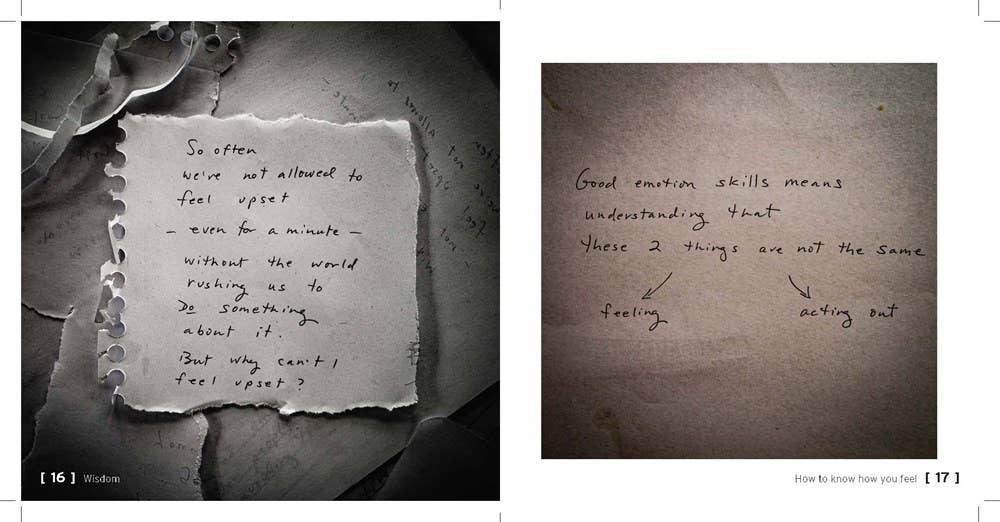 So often
we're not allowed to
feel upset
– even for a minute –
without the world
rushing us to
Do something
about it.
But why can't I
feel upset?
[ 16 ] Wisdom
Good emotion skills means
understanding that
these 2 things are not the same
feeling acting out
How to know how you feel [ 17 ]